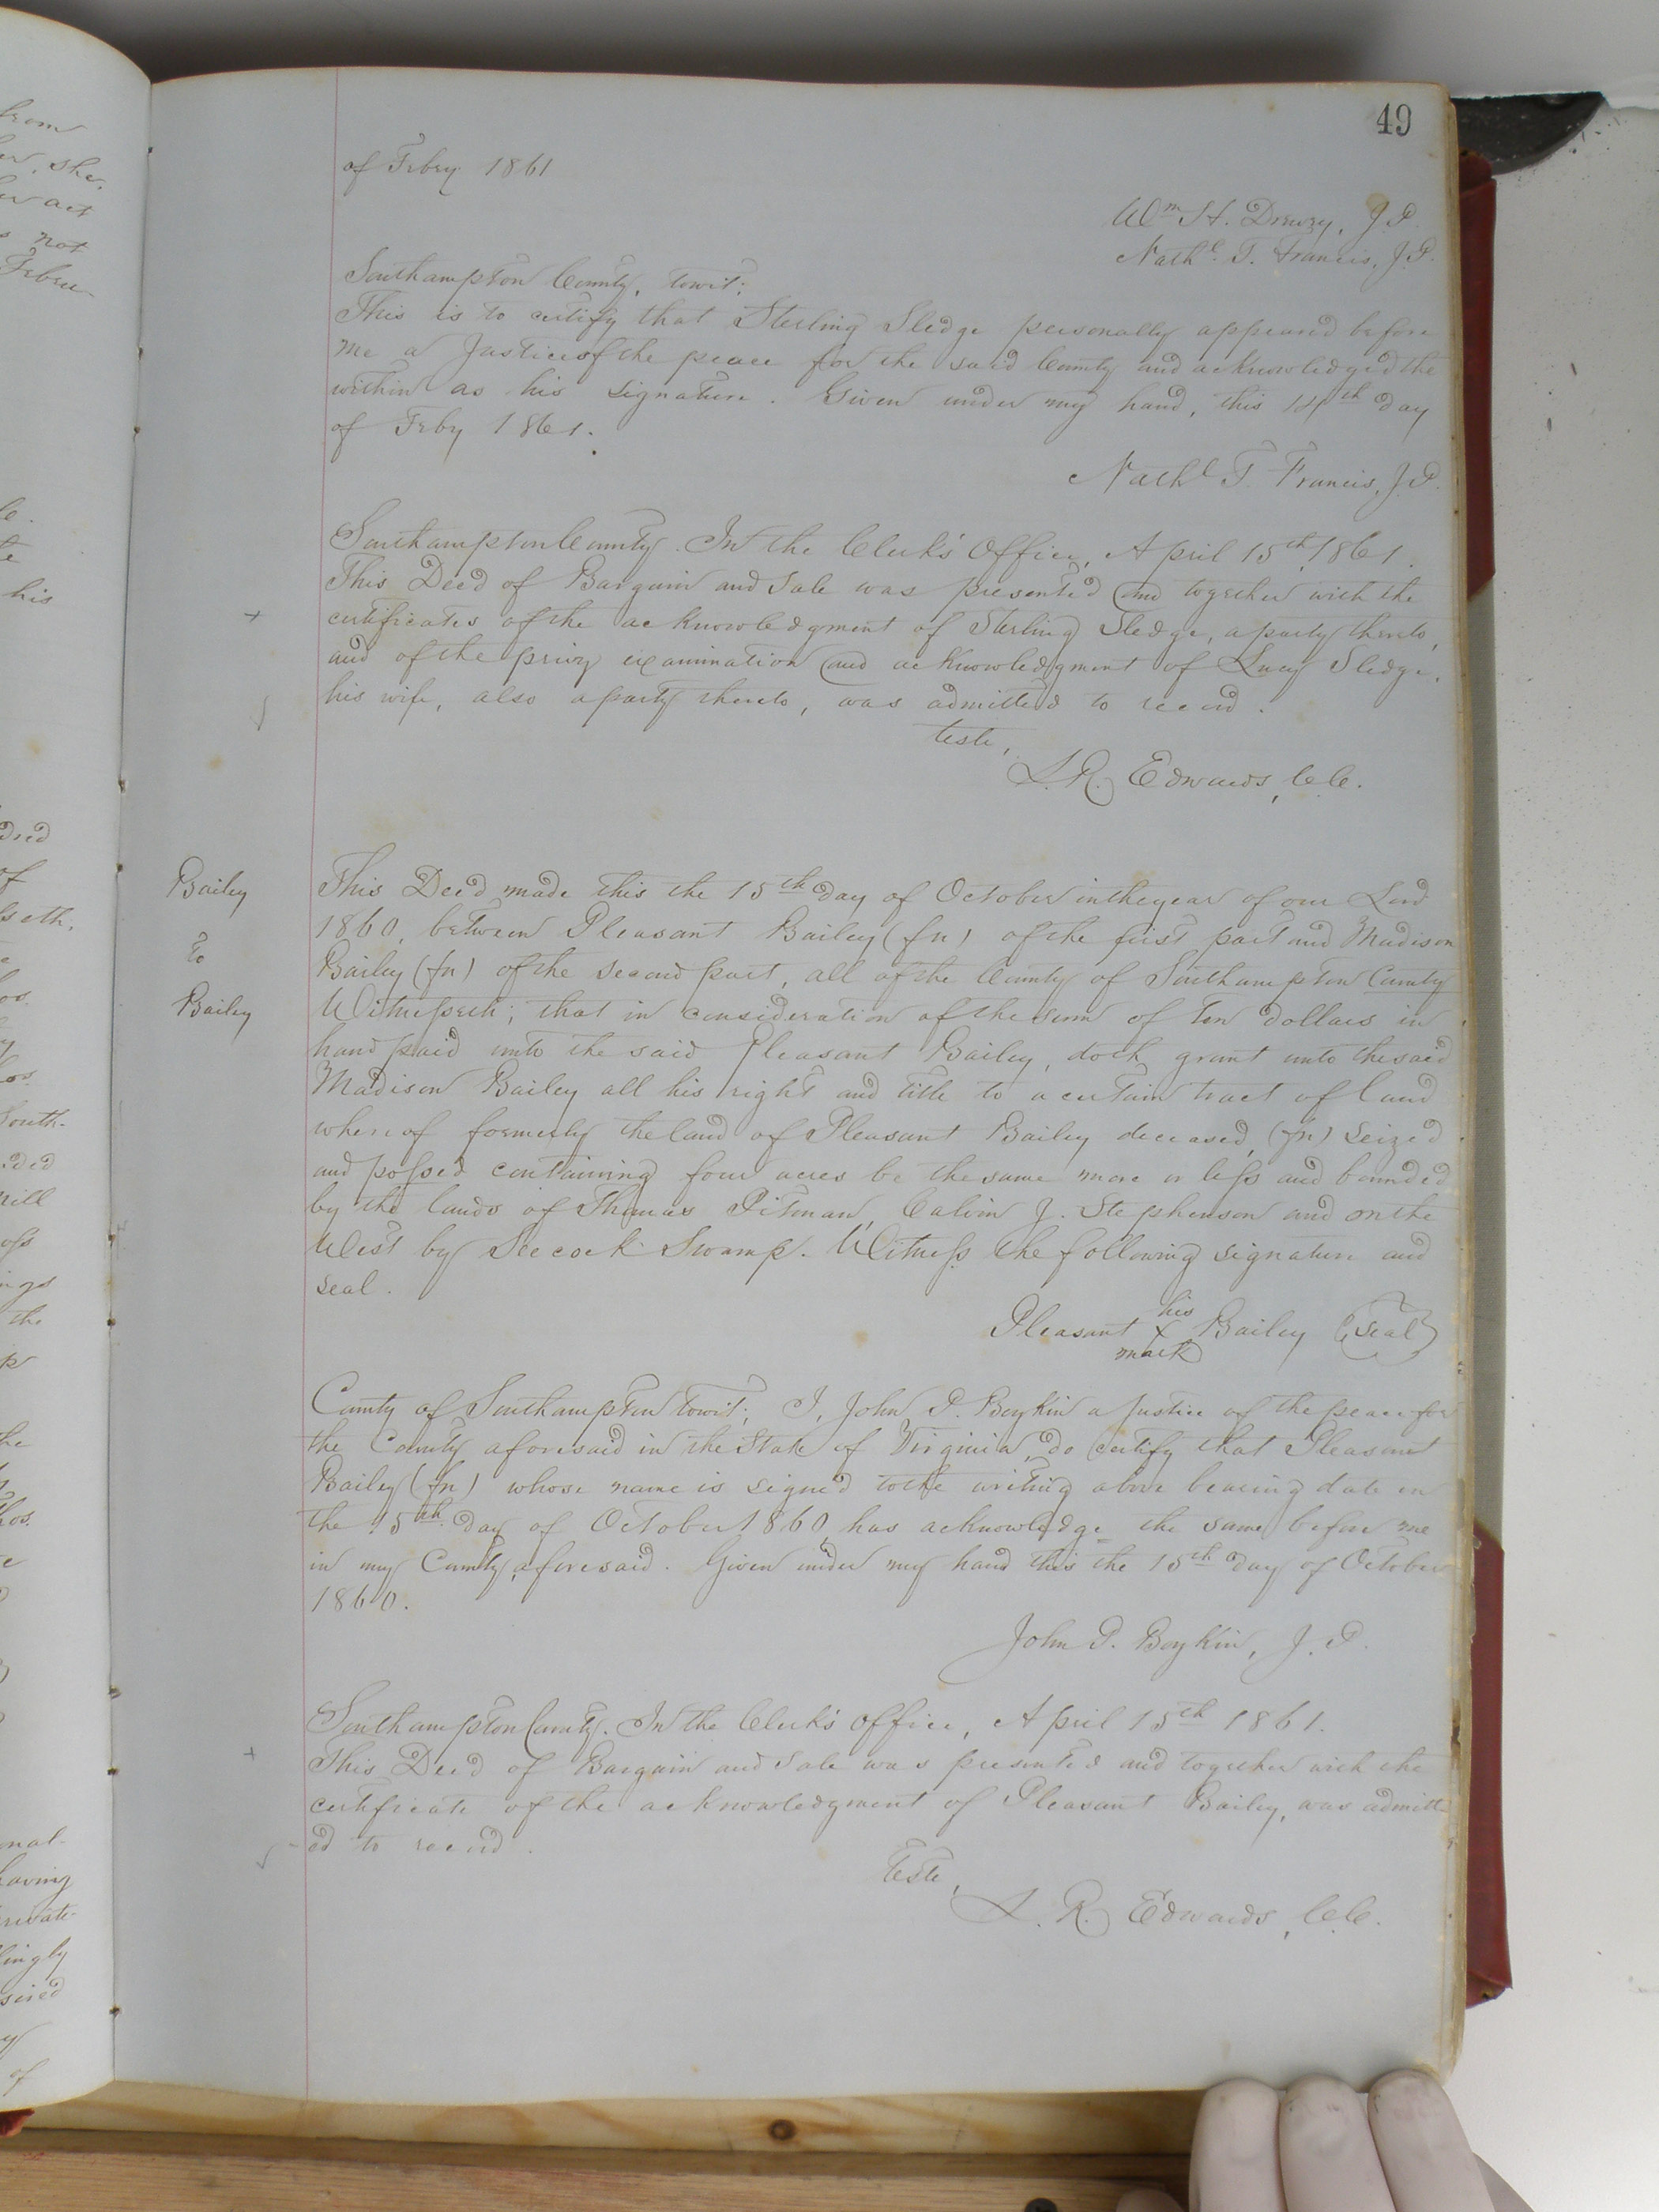 49
of Febry 1861
Wm H. Drewry, J.P.
Nathl. T. Francis, J.P.
Southampton County, towit;
This is to certify that Sterling Sledge personally appeared before
me a Justice of the peace for the said County and acknowledged the
within as his signature. Given under my hand, this 14th day
of Feby 1861.
Nathl T. Francis, J.P.
Southampton County. In the Clerk's Office, April 15th, 1861.
This Deed of Bargain and Sale was presented and together with the
certificates of the acknowledgment of Sterling Sledge, a party thereto,
and of the privy examination and acknowledgment of Lucy Sledge,
his wife, also a party thereto, was admitted to record.
teste,
L. R. Edwards, C.C.
Bailey
To
Bailey
This Deed made this the 15th day of October in the year of our Lord
1860, between Pleasant Bailey (fn) of the first part and Madison
Bailey (fn) of the second part, all of the County of Southampton County
Witnesseth; that in consideration of the sum of ten dollars in
hand paid unto the said Pleasant Bailey, doth grant unto the said
Madison Bailey all his right and title to a certain tract of land
whereof formerly the land of Pleasant Bailey deceased, (fn) seized
and possed containing four acres be the same more or less and bounded
by the lands of Thomas Pitman, Calvin J. Stephenson and on the
West by Seecock Swamp. Witness the following signature and
seal.
his
Pleasant X Bailey (Seal)
mark
County of Southampton towit; I, John P. Boykin a Justice of the peace for
the County aforesaid in the State of Virginia, do certify that Pleasant
Bailey (fn) whose name is signed to the writing above bearing date on
the 15th. day of October 1860, has acknowledge the same before me
in my County aforesaid. Given under my hand this the 15th day of October
1860.
John P. Boykin, J. P.
Southampton County. In the Clerk's Office, April 15th 1861.
This Deed of Bargain and Sale was presented and together with the
certificate of the acknowledgment of Pleasant Bailey, was admitt-
-ed to record.
Teste,
L. R. Edwards, C.C.